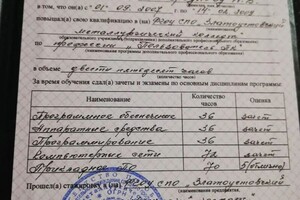 с «01» 09. 2007
повышал(а) свою квалификацию в (на) ФГОУ СПО „Златоустовский
металлургический колледж"
по профессии „Пользователь ПК"
в объеме двести пятьдесят часов
За время обучения сдал(а) зачеты и экзамены по основным дисциплинам программы:
Наименование Количество часов Оценка
Программное обеспечение 36 зачет
Аппаратные средства 36 зачет
Программирование 36 зачет
Компьютерные сети 72 зачет
Прикладное ПО 70 5(отлично)
Прошел(а) стажировку в (на) ФГОУ СПО „Златоустовский